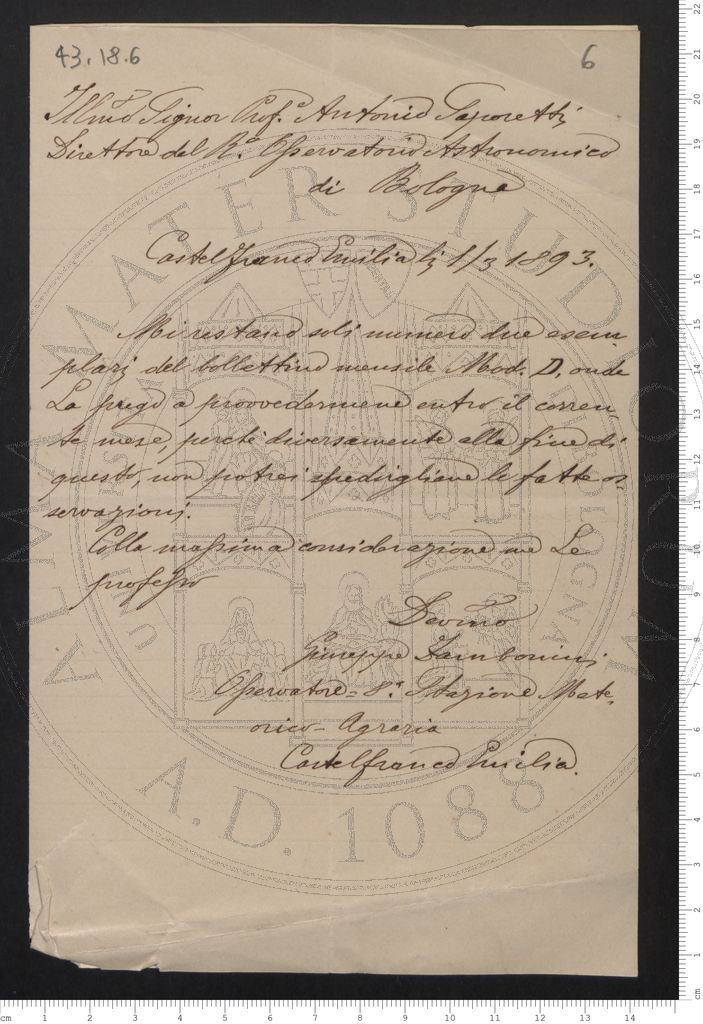 43.18.6
6
Illmo Signor Prof. Antonio Saporetti
Direttore del R.o Osservatorio Astronomico
di Bologna
Castelfranco Emilia li 1/3 1893.
Mi restano soli numero due esem
plari del bollettino mensile Mod. D, onde
La prego a provvedermene entro il corren-
te mese, perchè diversamente alla fine di
questo, non potrei spedirgliene le fatte os-
servazioni.
Colla massima considerazione me Le
professo
Devmo
Giuseppe Zambonini
Osservatore = 8.a Stazione Mete-
orico - Agraria
Castelfranco Emilia.
ALMA MATER STUDIORUM
A.D. 1088